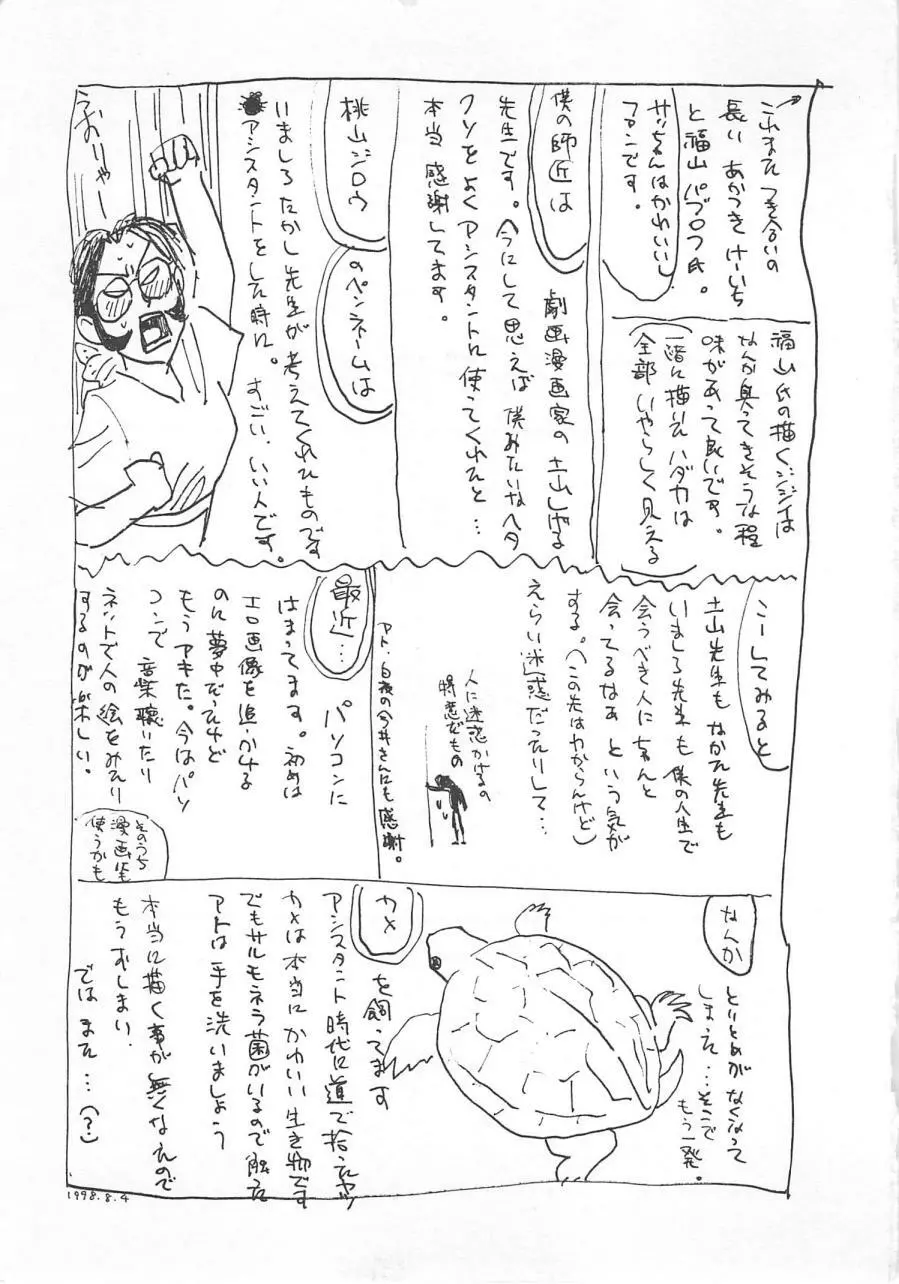 これまたつき合いの
長い あかつきけーいち
と福山パブロフ氏。
サッちゃんはかわいい
ファンです。
福山氏の描くジジイは
なんか臭ってきそうな程
味があって良いです。
一緒に描いたハダカは
全部いやらしく見える
僕の師匠は
劇画漫画家の土山しげる
先生です。今にして思えば僕みたいなヘタ
クソをよくアシスタントに使ってくれたと…
本当感謝してます。
桃山ジロウ
のペンネームは
いましろたかし先生が考えてくれたものです
アシスタントをした時に。すごい、いい人です。
うおりゃー
こーしてみると
土山先生もなかた先生も
いましろ先生も僕の人生で
会うべき人にちゃんと
会ってるなぁという気が
する。(この先はわからんけど)
えらい迷惑だったりして…
人に迷惑かけるの
得意だもの
アト、白夜の今井さんにも感謝。
最近…
パソコンに
はまってます。初めは
エロ画像を追いかける
のに夢中だったけど
もうアキた。今はパソ
コンで音楽聴いたり
ネットで人の絵をみたり
するのが楽しい。
そのうち
漫画にも
使うかも
なんか
とりとめがなくなって
しまった…そこで
もう一発。
カメ
を飼ってます
アシスタント時代に道で拾ったヤツ
カメは本当にかわいい生き物です
でもサルモネラ菌がいるので触った
アトは手を洗いましょう
本当に描く事が無くなったので
もうおしまい
では また…(?)
1998.8.4